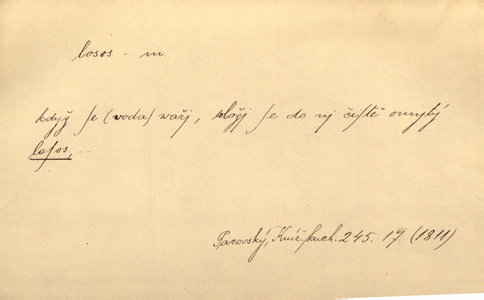 losos – m.
když ſe (voda) wařj, wložj ſe do nj čiſtě omytý
loſos, –
Pacovský, Kniž. kuch. 245. 17. (1811)